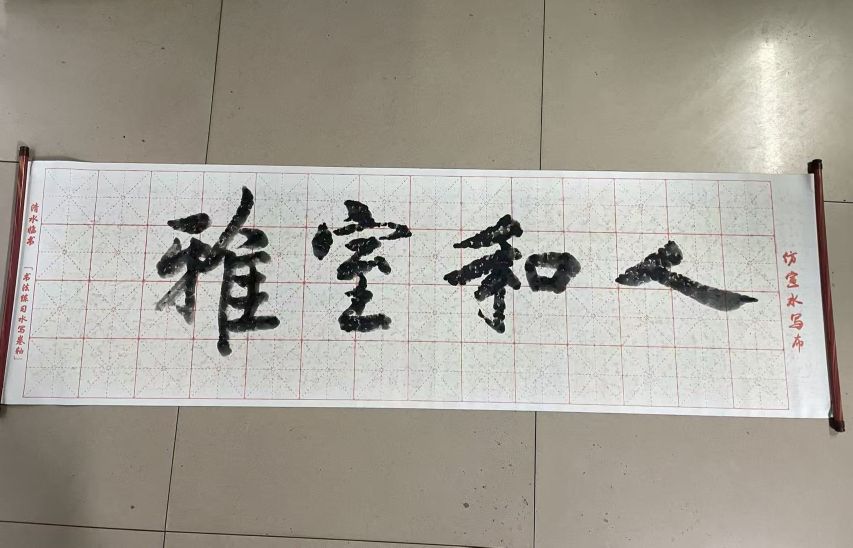 人和室雅
仿宣水写布
清水临书
「书法练习水写卷轴」